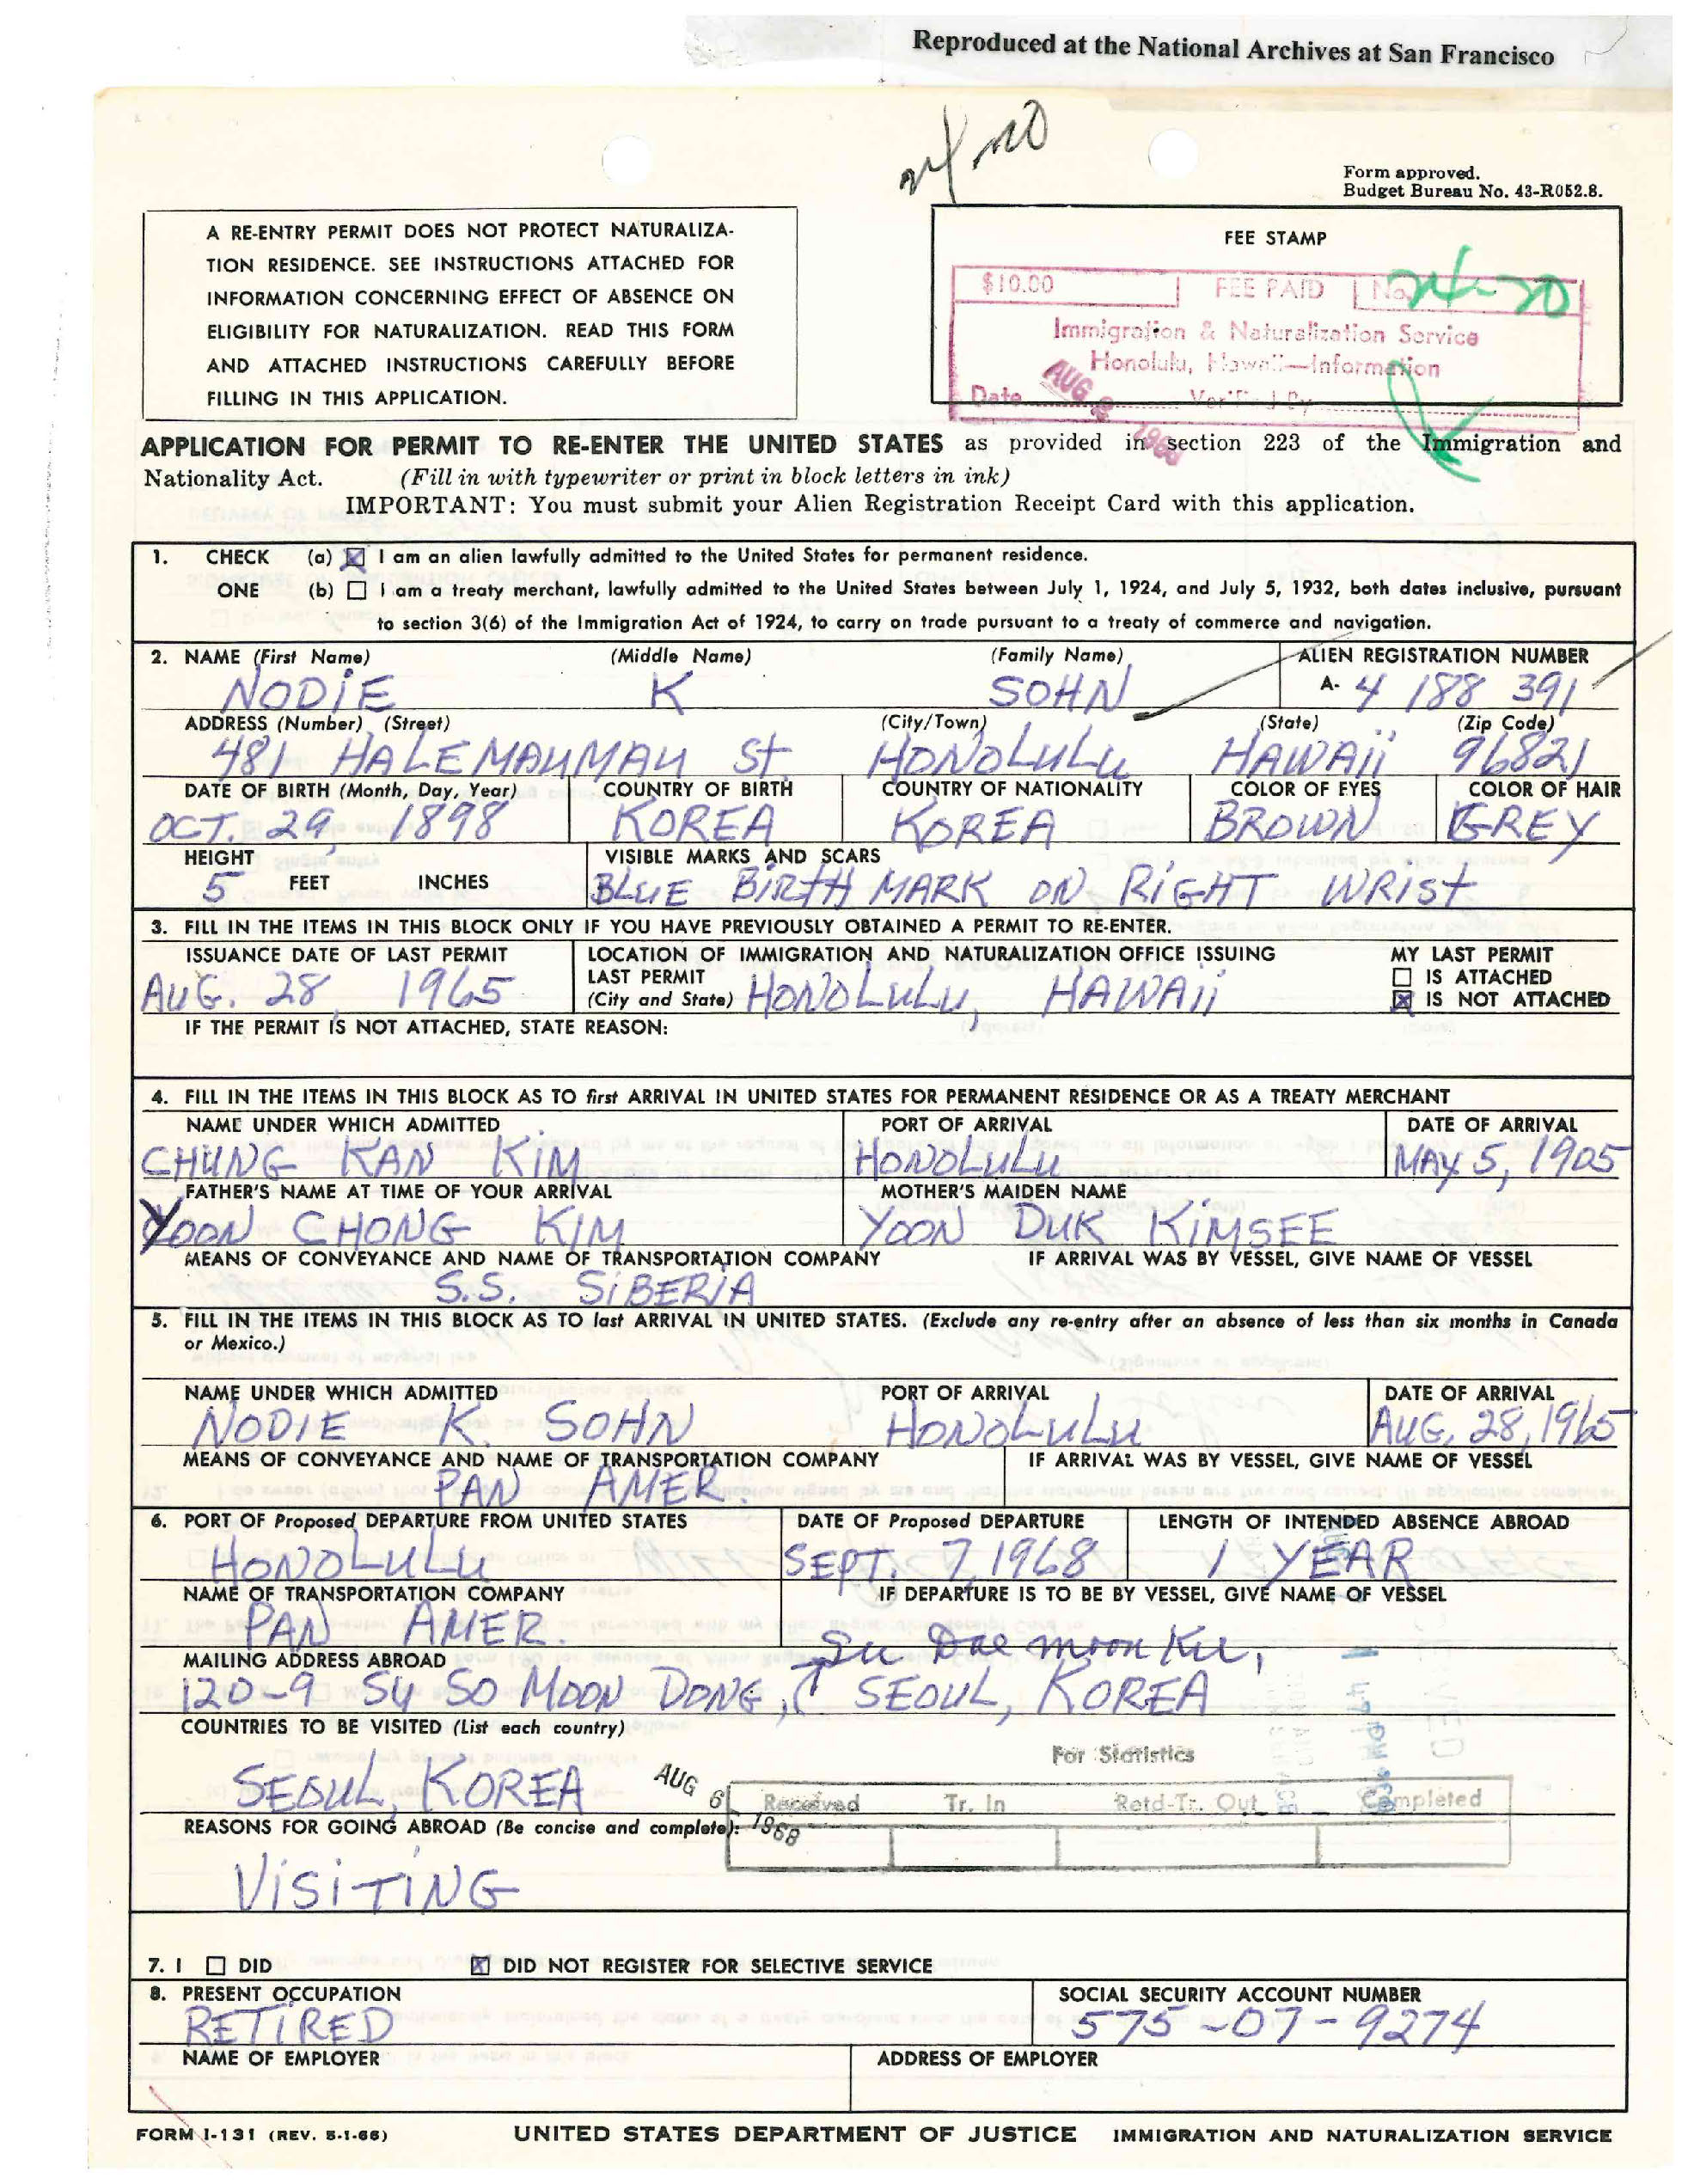 Reproduced at the National Archives at San Francisco
Form approved.
Budget Bureau No. 43-R052.8.
A RE-ENTRY PERMIT DOES NOT PROTECT NATURALIZA-
TION RESIDENCE. SEE INSTRUCTIONS ATTACHED FOR
INFORMATION CONCERNING EFFECT OF ABSENCE ON
ELIGIBILITY FOR NATURALIZATION. READ THIS FORM
AND ATTACHED INSTRUCTIONS CAREFULLY BEFORE
FILLING IN THIS APPLICATION.
FEE STAMP
$10.00 FEE PAID No.
Immigration & Naturalization Service
Honolulu, Hawaii—Information
Date AUG 1968 Verified By
APPLICATION FOR PERMIT TO RE-ENTER THE UNITED STATES as provided in section 223 of the Immigration and
Nationality Act. (Fill in with typewriter or print in block letters in ink)
IMPORTANT: You must submit your Alien Registration Receipt Card with this application.
1. CHECK (a) ☒ I am an alien lawfully admitted to the United States for permanent residence.
ONE (b) ☐ I am a treaty merchant, lawfully admitted to the United States between July 1, 1924, and July 5, 1932, both dates inclusive, pursuant
to section 3(6) of the Immigration Act of 1924, to carry on trade pursuant to a treaty of commerce and navigation.
2. NAME (First Name) (Middle Name) (Family Name) ALIEN REGISTRATION NUMBER
NODIE K SOHN A- 4 188 391
ADDRESS (Number) (Street) (City/Town) (State) (Zip Code)
481 HALEMAUMAU St. HONOLULU HAWAII 96821
DATE OF BIRTH (Month, Day, Year) COUNTRY OF BIRTH COUNTRY OF NATIONALITY COLOR OF EYES COLOR OF HAIR
OCT. 29, 1898 KOREA KOREA BROWN GREY
HEIGHT VISIBLE MARKS AND SCARS
5 FEET INCHES BLUE BIRTH MARK ON RIGHT WRIST
3. FILL IN THE ITEMS IN THIS BLOCK ONLY IF YOU HAVE PREVIOUSLY OBTAINED A PERMIT TO RE-ENTER.
ISSUANCE DATE OF LAST PERMIT LOCATION OF IMMIGRATION AND NATURALIZATION OFFICE ISSUING MY LAST PERMIT
LAST PERMIT ☐ IS ATTACHED
AUG. 28, 1965 (City and State) HONOLULU, HAWAII ☒ IS NOT ATTACHED
IF THE PERMIT IS NOT ATTACHED, STATE REASON:
4. FILL IN THE ITEMS IN THIS BLOCK AS TO first ARRIVAL IN UNITED STATES FOR PERMANENT RESIDENCE OR AS A TREATY MERCHANT
NAME UNDER WHICH ADMITTED PORT OF ARRIVAL DATE OF ARRIVAL
CHUNG KAN KIM HONOLULU MAY 5, 1905
FATHER'S NAME AT TIME OF YOUR ARRIVAL MOTHER'S MAIDEN NAME
YOON CHONG KIM YOON DUK KIMSEE
MEANS OF CONVEYANCE AND NAME OF TRANSPORTATION COMPANY IF ARRIVAL WAS BY VESSEL, GIVE NAME OF VESSEL
S.S. SIBERIA
5. FILL IN THE ITEMS IN THIS BLOCK AS TO last ARRIVAL IN UNITED STATES. (Exclude any re-entry after an absence of less than six months in Canada
or Mexico.)
NAME UNDER WHICH ADMITTED PORT OF ARRIVAL DATE OF ARRIVAL
NODIE K. SOHN HONOLULU AUG. 28, 1965
MEANS OF CONVEYANCE AND NAME OF TRANSPORTATION COMPANY IF ARRIVAL WAS BY VESSEL, GIVE NAME OF VESSEL
PAN AMER.
6. PORT OF Proposed DEPARTURE FROM UNITED STATES DATE OF Proposed DEPARTURE LENGTH OF INTENDED ABSENCE ABROAD
HONOLULU SEPT. 7, 1968 1 YEAR
NAME OF TRANSPORTATION COMPANY IF DEPARTURE IS TO BE BY VESSEL, GIVE NAME OF VESSEL
PAN AMER.
Su Dae moon Ku,
MAILING ADDRESS ABROAD
120-9 SU SO MOON DONG, SEOUL, KOREA
COUNTRIES TO BE VISITED (List each country)
SEOUL, KOREA
For Statistics
AUG 6 1968
Received Tr. In Retd-Tr. Out Completed
REASONS FOR GOING ABROAD (Be concise and complete):
VISITING
7. I ☐ DID ☒ DID NOT REGISTER FOR SELECTIVE SERVICE
8. PRESENT OCCUPATION SOCIAL SECURITY ACCOUNT NUMBER
RETIRED 575-07-9274
NAME OF EMPLOYER ADDRESS OF EMPLOYER
FORM I-131 (REV. 5-1-66) UNITED STATES DEPARTMENT OF JUSTICE IMMIGRATION AND NATURALIZATION SERVICE